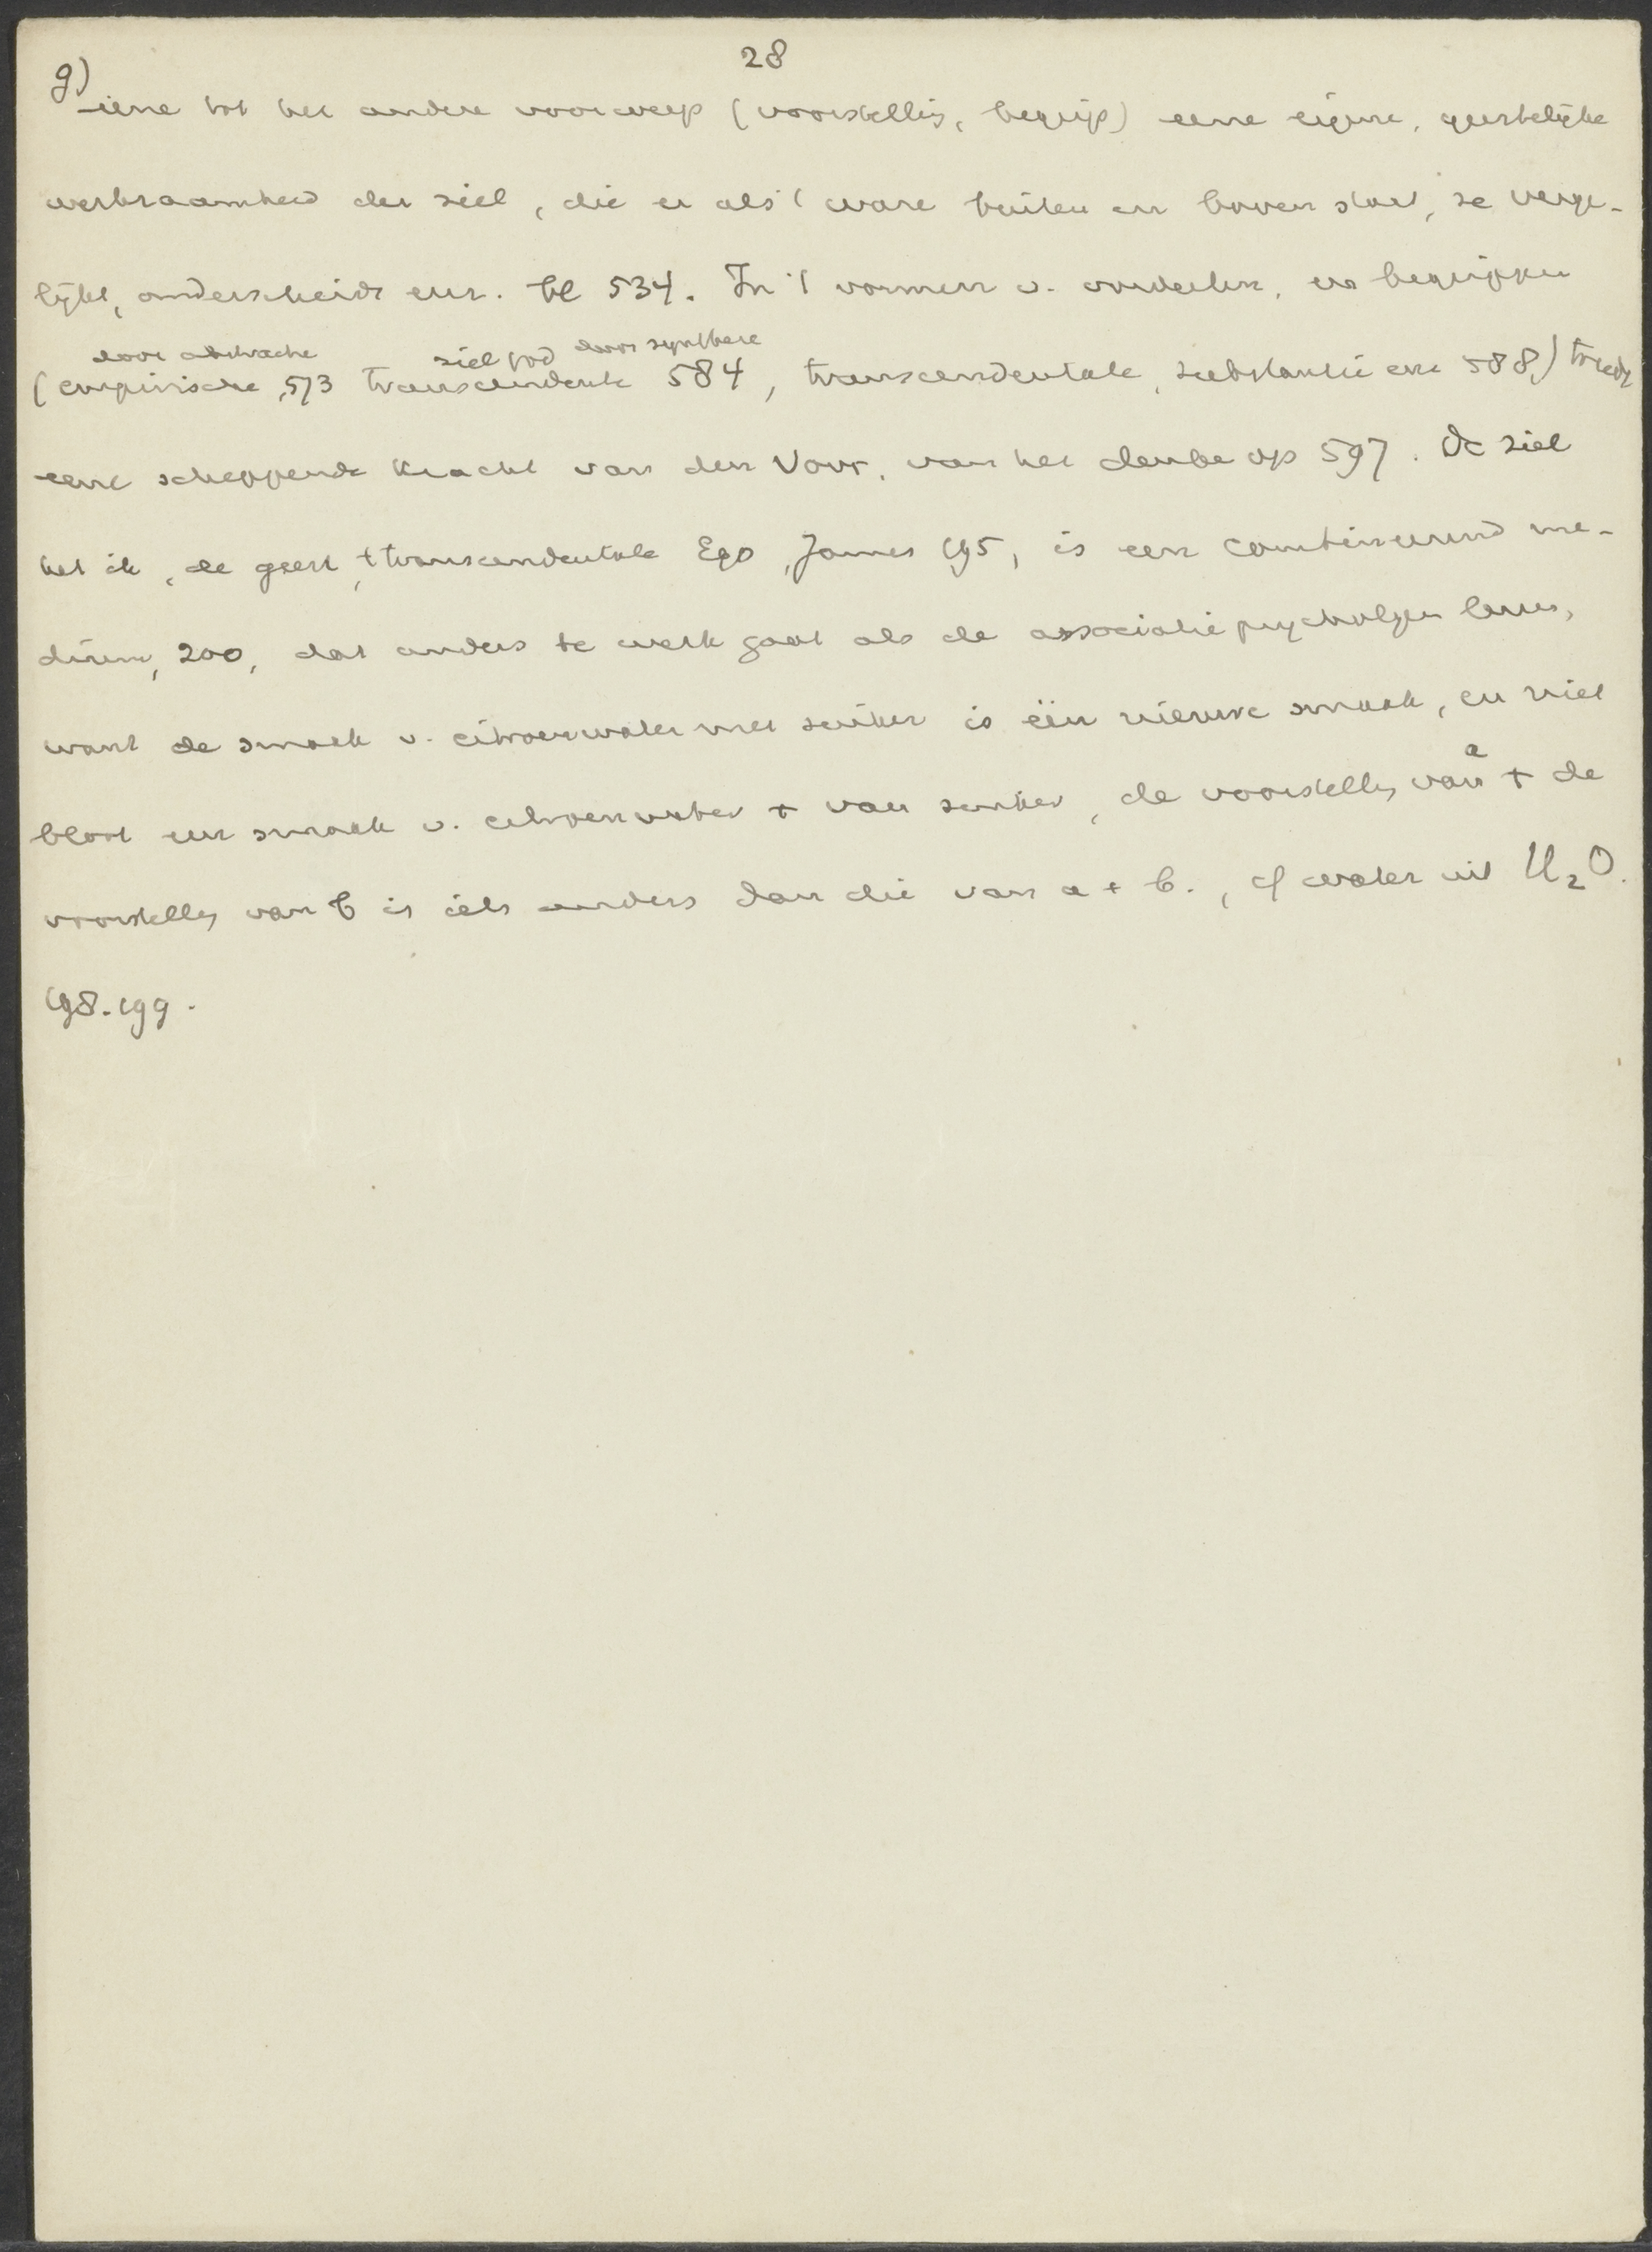 28
g)
eene tot het andere voorwerp (voorstellig, begrip) eene eigene, geestelijke
werkzaamheid der ziel, die er als 't ware buiten en boven staat, ze verge-
lijkt, onderscheidt enz. bl 534. In 't vormen v. oordeelen, en begrippen
door abstractie ziel god door synthese
(empirische, 573 transcendente 584, transcendentale, substantie enz 588,) treedt
eene scheppende kracht van den voor. van het denke op 597. De ziel
het ik, de geest, transcendentale Ego, James 195, is een combineerend me-
dium, 200, dat anders te werk gaat als de associatiepsychologen leeren,
want de smaak v. citroenwater met suiker is één nieuwe smaak, en niet
bloot een smaak v. citroenwater + van suiker, de voorstellg van a + de
voorstellg van b is iets anders dan die van a + b., cf water uit H2O.
198. 199.